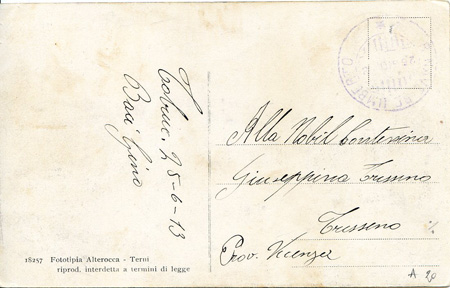 Tobruc. 25-6-13
Baci Gino
Alla Nobil Contessina
Giuseppina Trissino
Trissino
Prov. Vicenza
18257 Fototipia Alterocca - Terni
riprod. interdetta a termini di legge
A 20